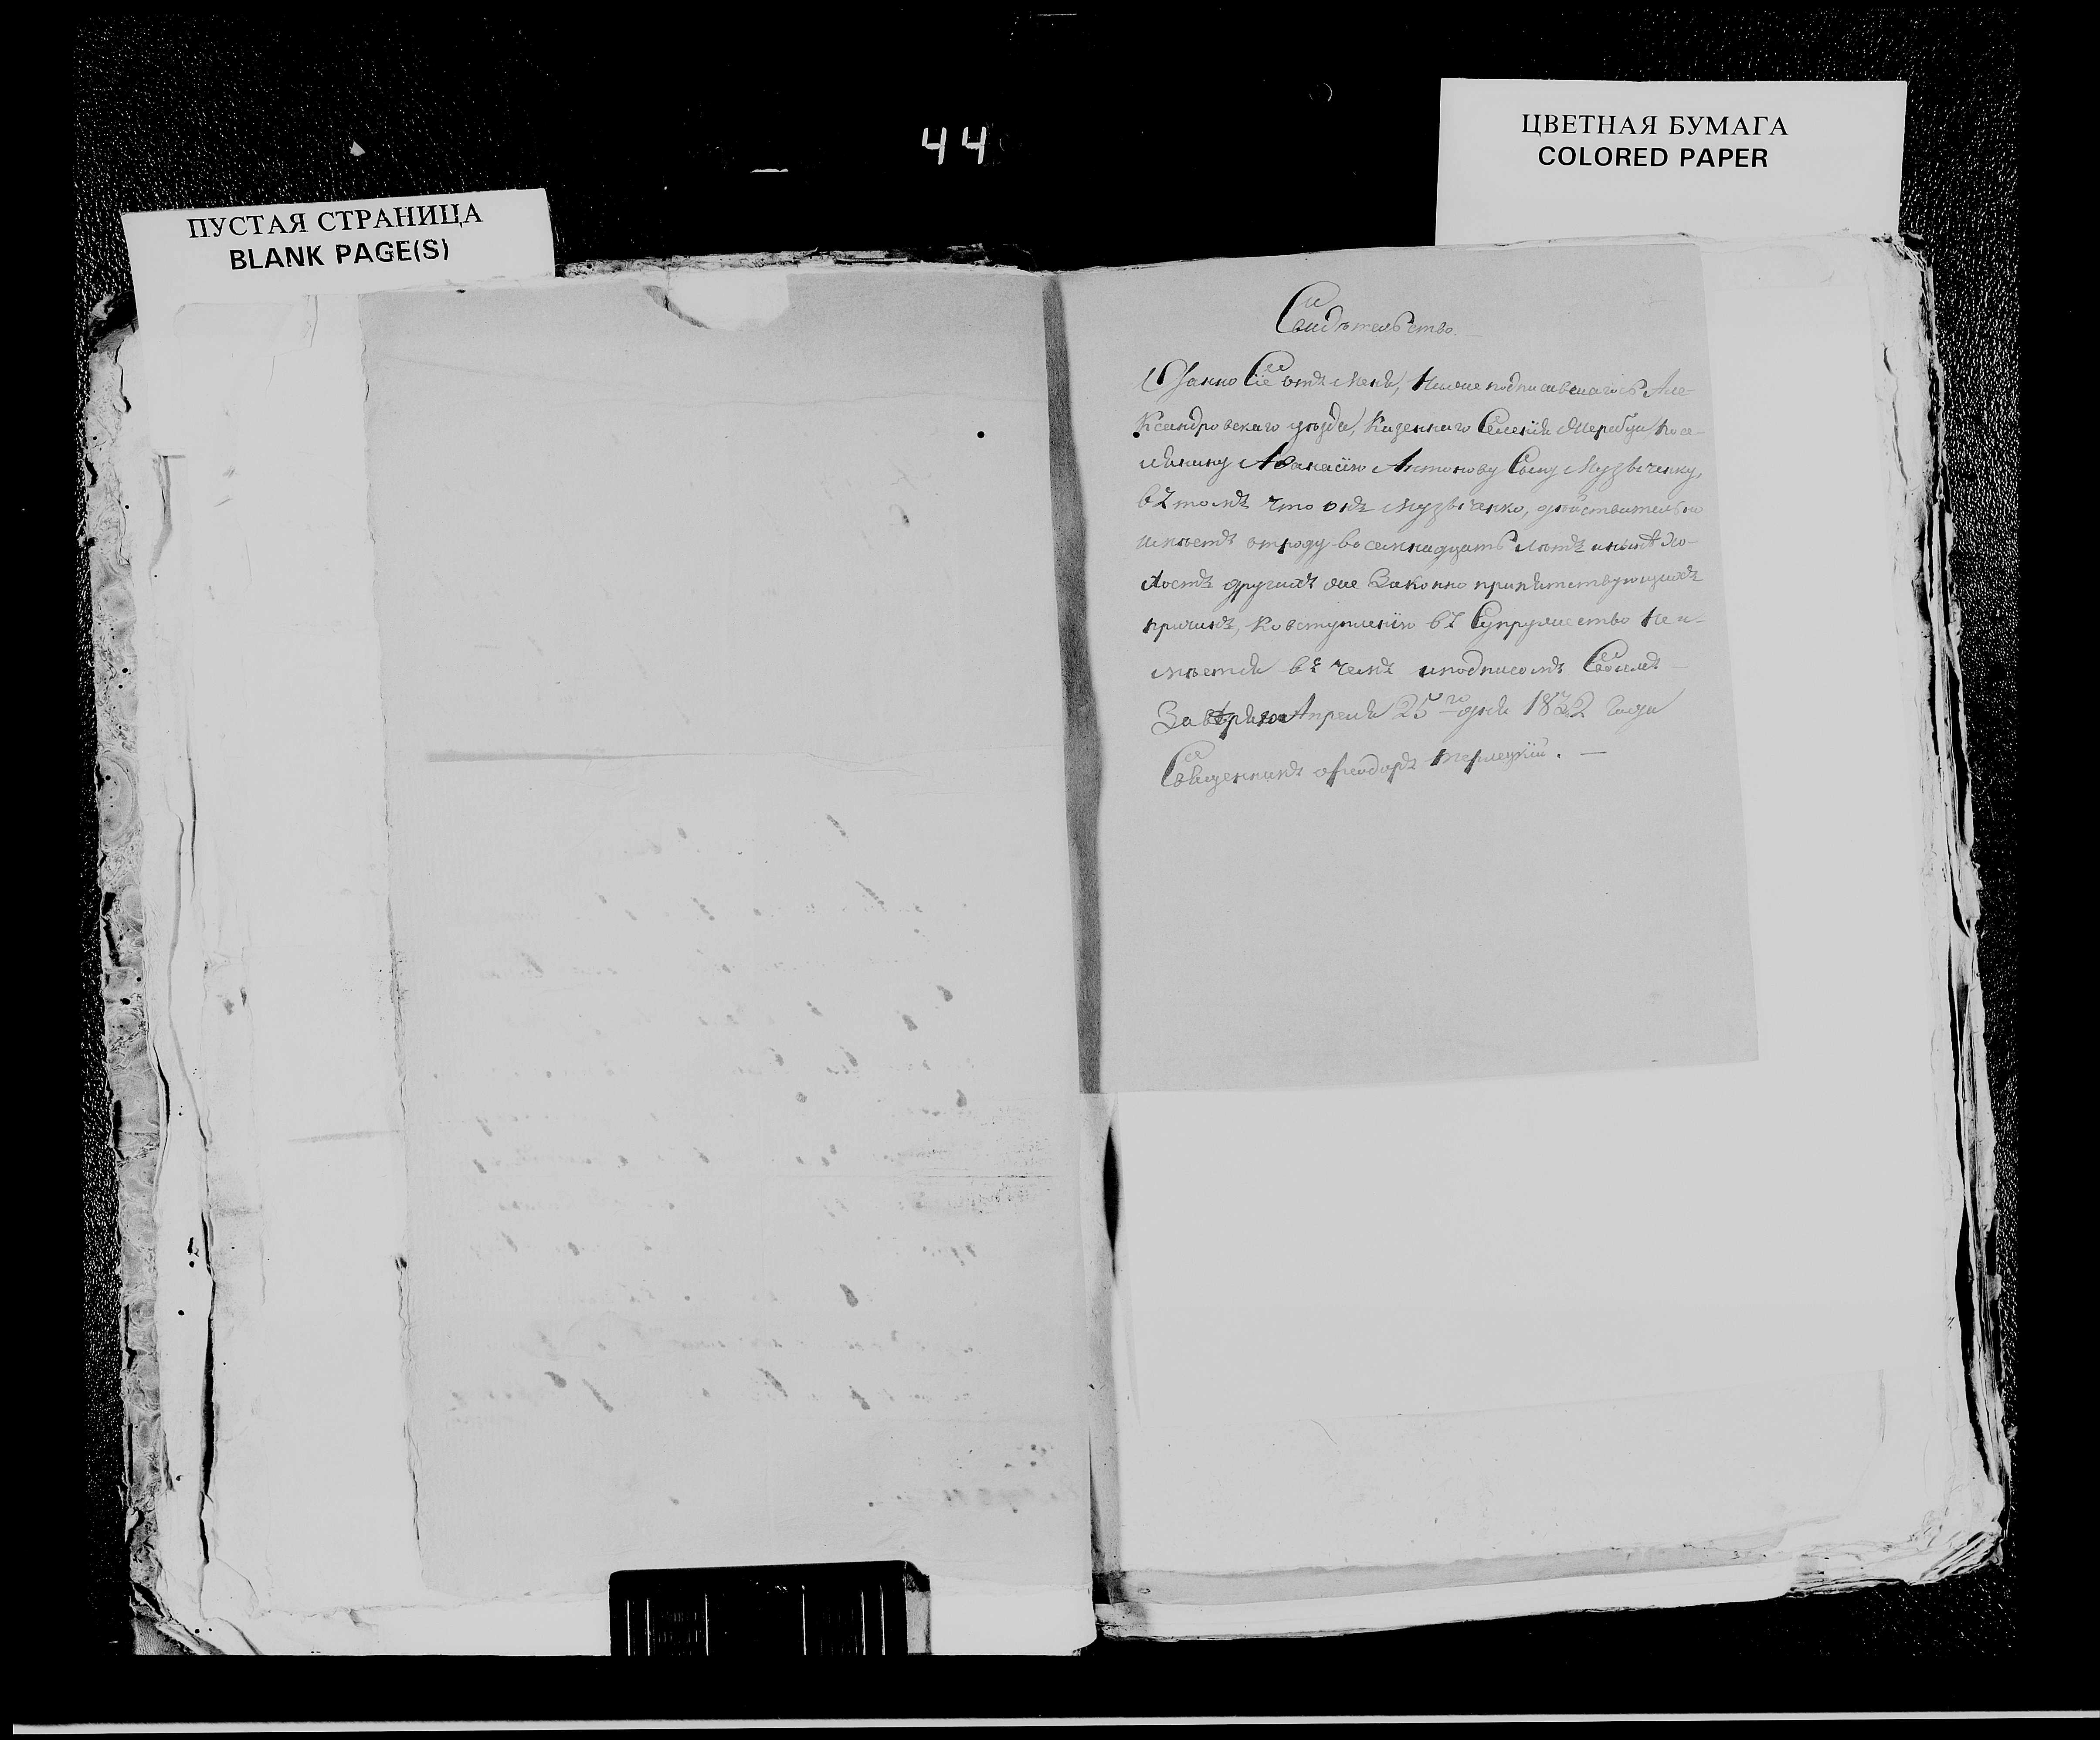 44
ПУСТАЯ СТРАНИЦА
BLANK PAGE(S)
ЦВЕТНАЯ БУМАГА
COLORED PAPER
Свидѣтельство.
Данно Сіе отъ меня, нижеподписавшагось Але-
ксандровскаго уѣзда, Казеннаго Селенія посе-
лянину Афанасію Антонову Сыну Музыченку,
въ томъ что онъ Музыченко, дѣйствительно
имѣетъ отроду восемнадцать лѣтъ инынѣ хо-
лостъ другихъ же Законно припятствующихъ
причинъ, ковступленію въ Супружество неи-
мѣетси въ чемъ иподписомъ Своимъ
Завѣряю Апреля 25го дня 1832 Года
Священникъ Феодоръ Терлецкій. —